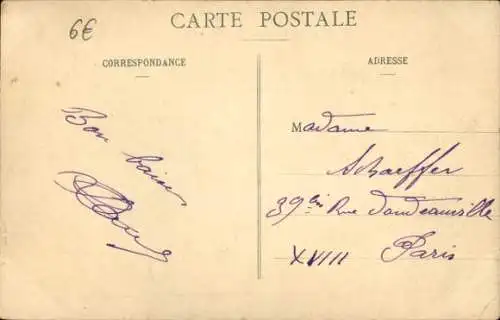 6€
CARTE POSTALE
CORRESPONDANCE
ADRESSE
Bon baiser
Madame
Schaeffer
39 bis Rue Doudeauville
XVIII Paris